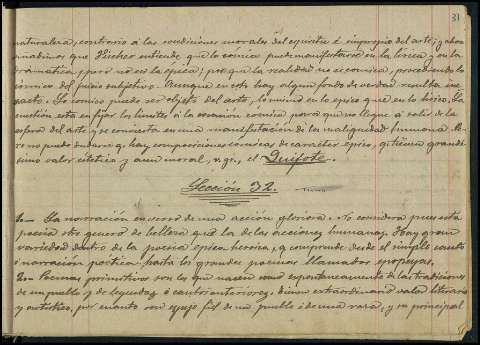 31
naturaleza, contrario á las condiciones morales del espíritu é impropio del arte; y aho
que Vischer entiende que lo cómico puede manifestarse en la lírica y en la
dramática, pero no en la épica; por que la realidad no es cómica, procediendo lo
cómico del juicio subjetivo. Aunque en esto hay algún fondo de verdad resulta ine
xacto. Lo cómico puede ser objeto del arte, lo mismo en lo épico que en lo lírico. La
cuestión está en fijar los límites á la creación cómica para que no llegue á salir de la
esfera del arte y se convierta en una manifestación de la malignidad humana. Pe
ro no puede dudarse q. hay composiciones cómicas de carácter épico, q. tienen grandí
simo valor estético y aun moral, v. gr., el Quijote.
Lección 32.
1.— La narración en verso de una acción gloriosa. No considera pues esta
poesía otro genero de belleza que la de las acciones humanas. Hay gran
variedad dentro de la poesía épica heroica, q. comprende desde el simple canto
ó narración poética, hasta los grandes poemas llamados epopeyas.
2.— Poemas primitivos son los que nacen como espontaneamente de las tradiciones
de un pueblo y de leyendas ó cantos anteriores; tienen extraordinario valor literario
y artístico, por cuanto son espejo fiel de un pueblo ó de una raza, y su principal